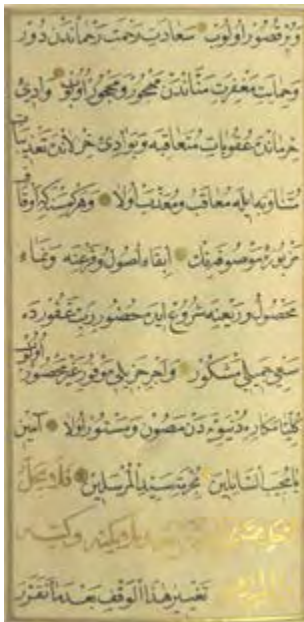 وبر قصور اولوب سعادت رحمت رحماندن دور
وحمايت مغفرت مناندن مهجور ومحجور اولوب وادئ
حرماندن عقوبات متعاقبه وبوادئ خرلاندن تعذيبات
متناوبه ايله معاقب ومعذب اولا وهر كمسنه كه اوقاف
مزبوره موصوفه نك ابقاء اصول وفرعنه ونماء
محصول وريعنه شروع ايده حضور رب غفورده
سعي جميلى مشكور واجر جزيلى موفور غير محصور اولوب
كليا مكاره دنيويه دن مصون ومستور اولا آمين
يا مجيب السائلين بحرمة سيد المرسلين فلا يحل
تغيير هذا الوقف بعد ما تقرر